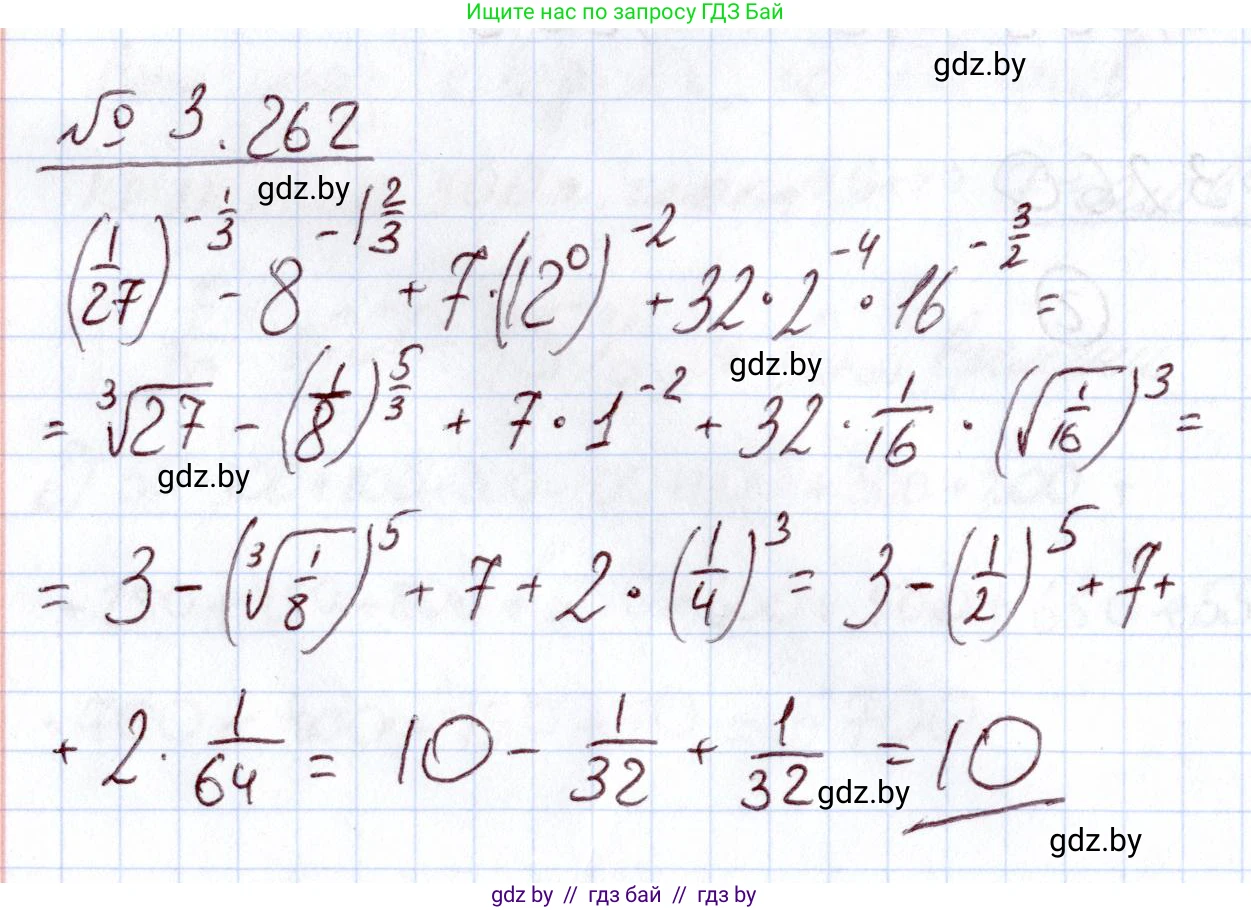 Ищите нас по запросу ГДЗ Бай
gdz.by
№ 3.262
gdz.by
(1/27)^(-1/3) - 8^(-1 2/3) + 7·(12^0)^(-2) + 32·2^(-4)·16^(-3/2) =
gdz.by
= ∛27 - (1/8)^(5/3) + 7·1^(-2) + 32·1/16·(√(1/16))^3 =
gdz.by
= 3 - (∛(1/8))^5 + 7 + 2·(1/4)^3 = 3 - (1/2)^5 + 7 +
+ 2·1/64 = 10 - 1/32 + 1/32 = 10
gdz.by
gdz.by
gdz by // гдз бай // гдз by